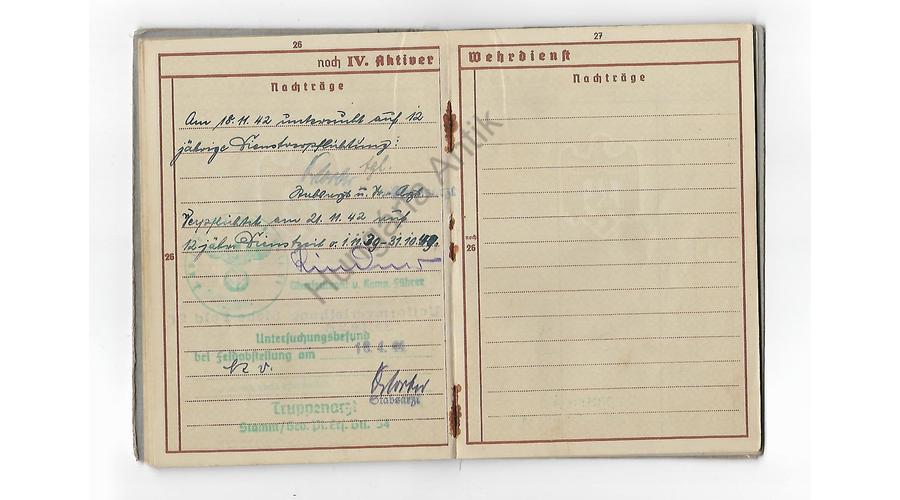 26
noch IV. Aktiver
Nachträge
Am 18.11.42 untersucht auf 12
jährige Dienstverpflichtung:
tgl.
u.
Verpflichtet am 21.11.42 auf
12 jähr. Dienstzeit v. 1.11.39-31.10.49.
u. Komp. Führer
26
Untersuchungsbefund
bei Feldabstellung am
kv.
Stabsarzt
Truppenarzt
Stamm/Geb. Pi. Ers. Btl. 54
27
Wehrdienst
Nachträge
noch
26
Hungaria Antik